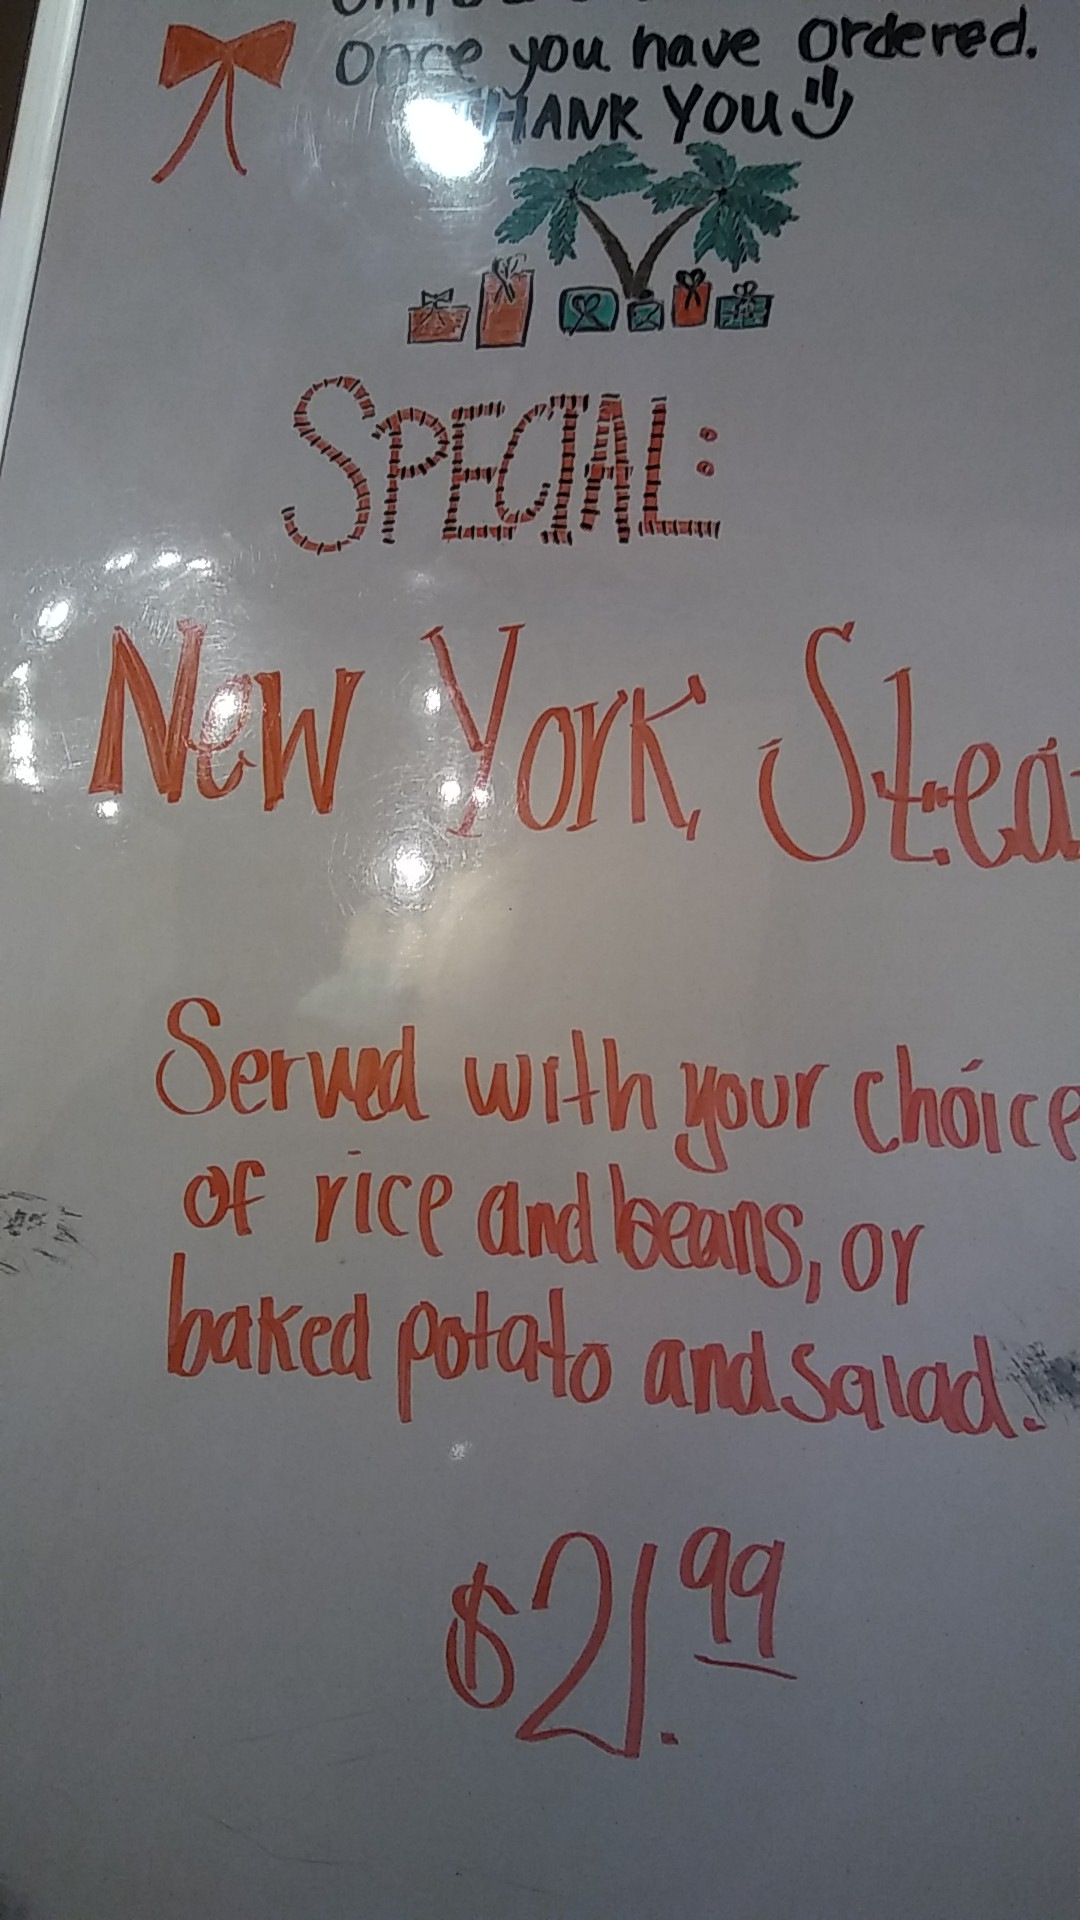 once you have ordered.
THANK YOU
SPECIAL:
New York Stea
Served with your choice
of rice and beans, or
baked potato and salad.
$21.99